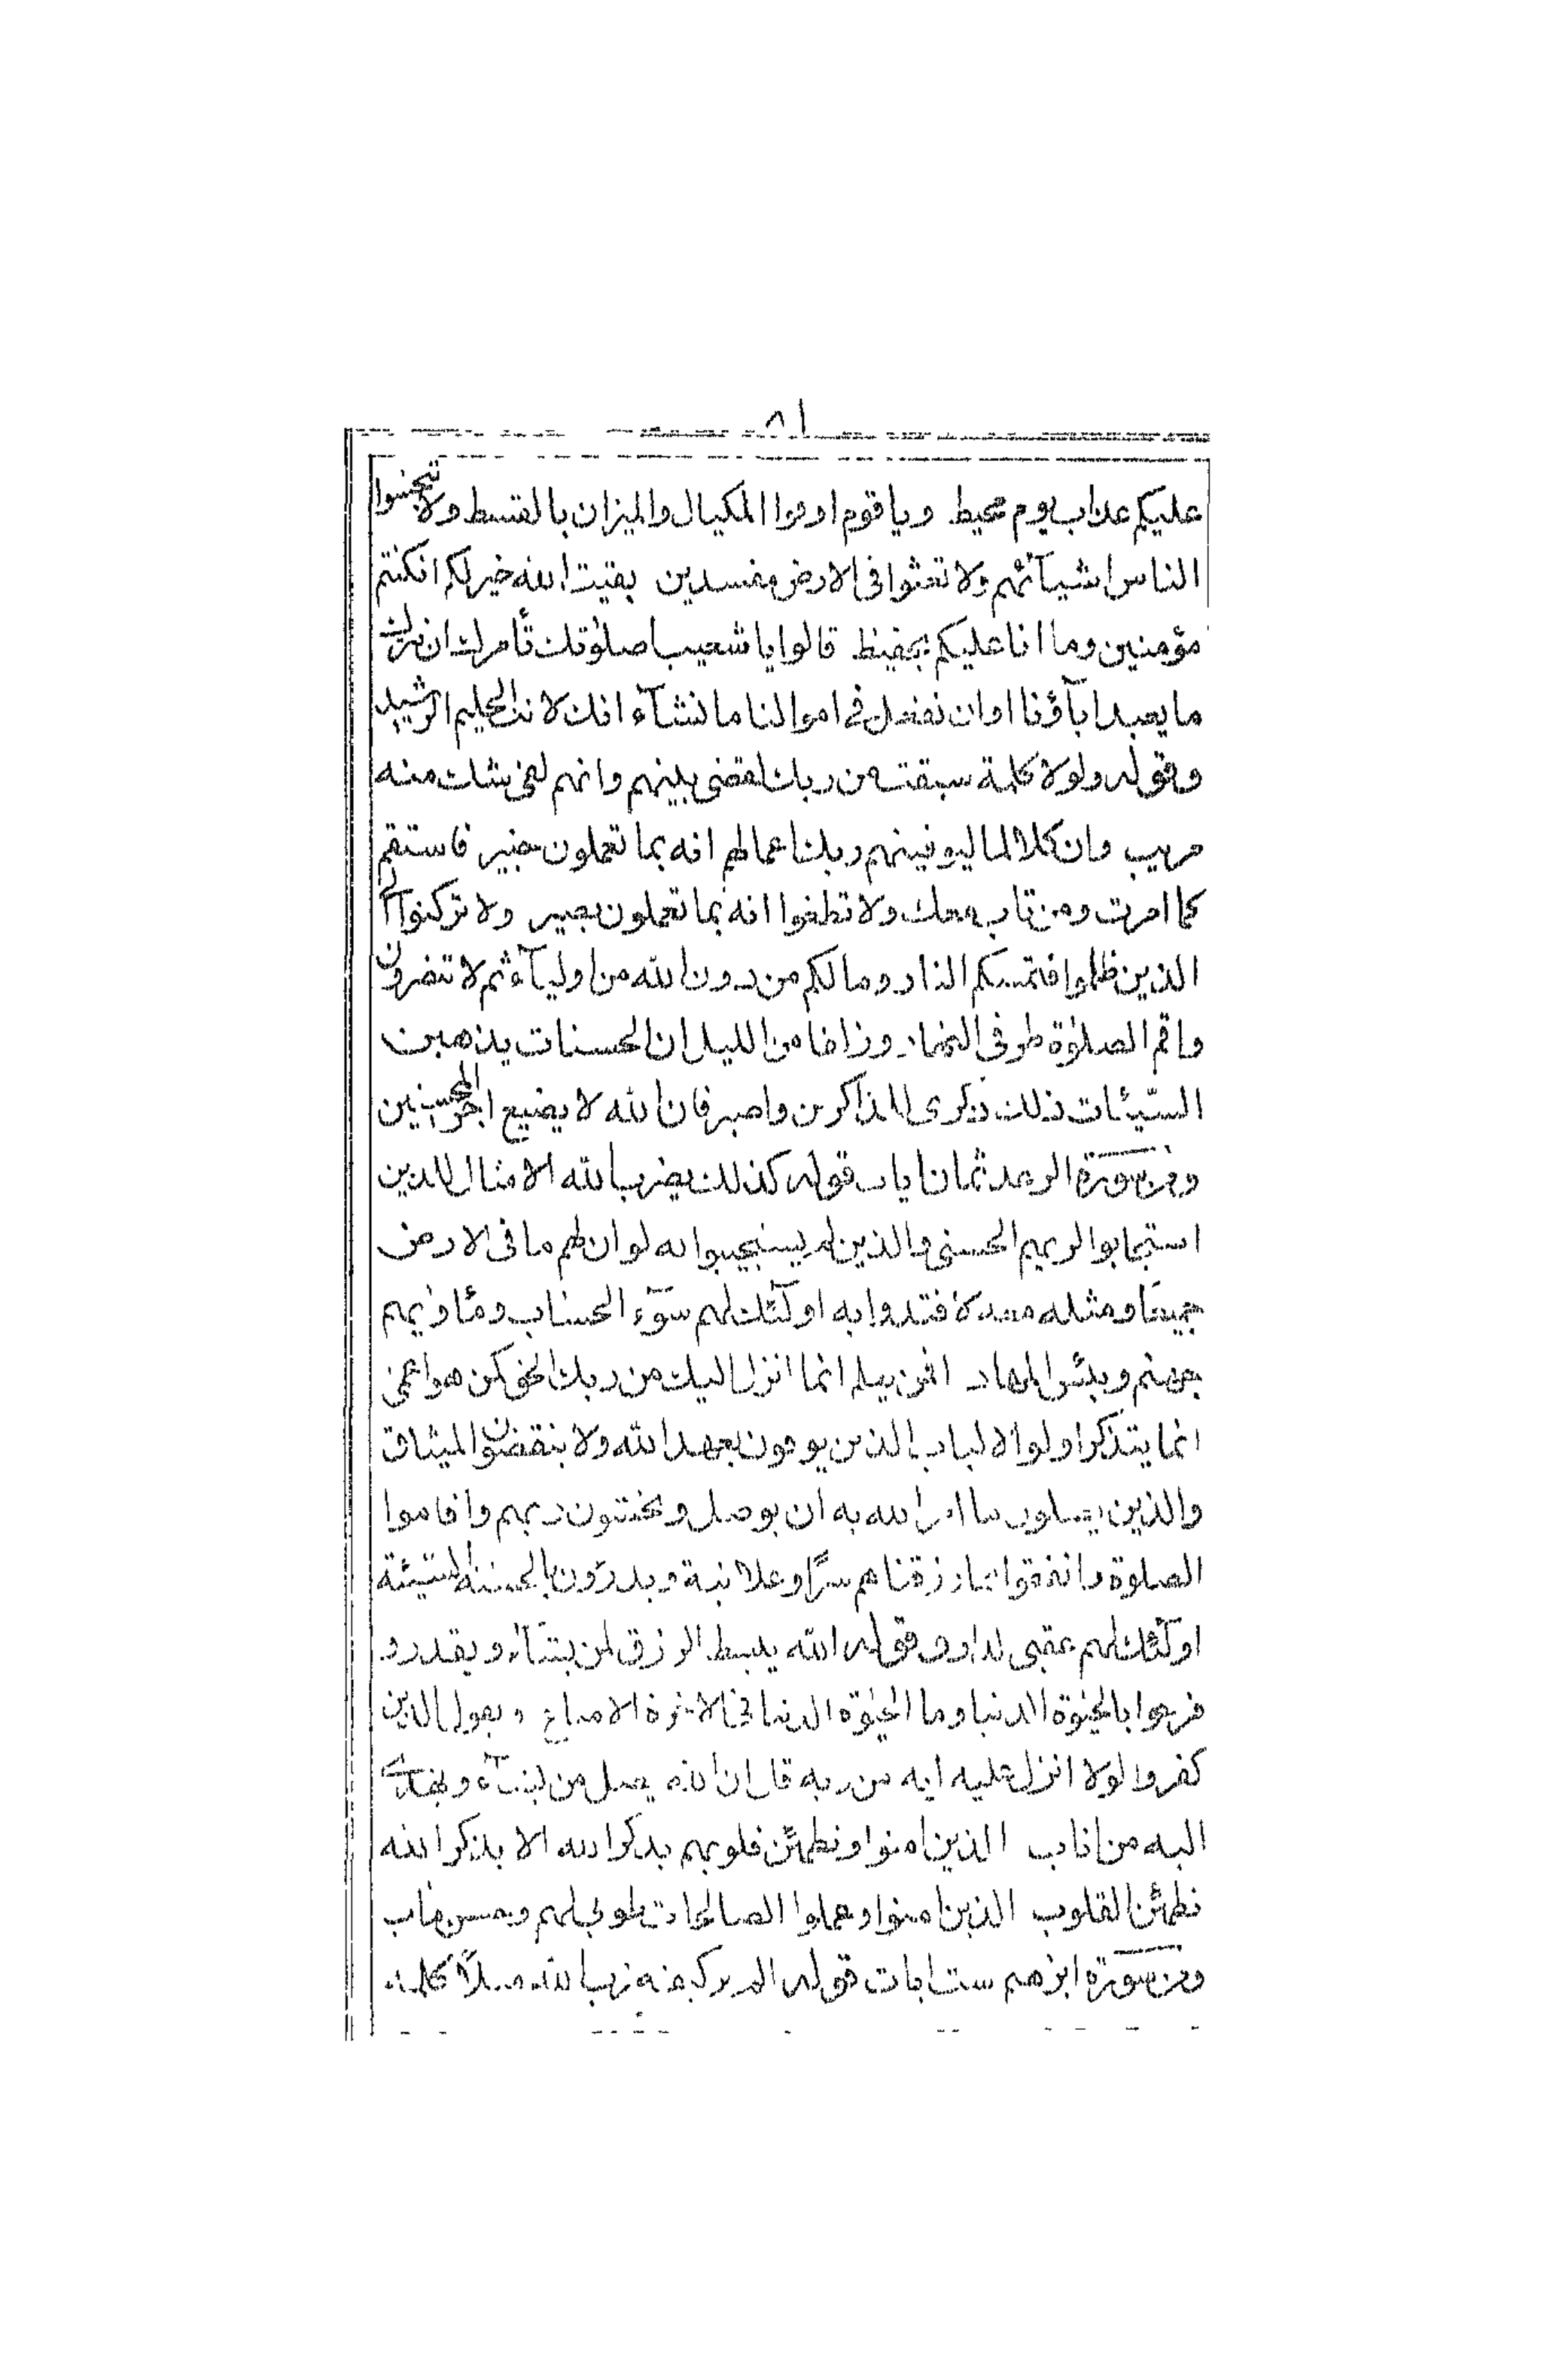 ٨١
عليكم عذاب يوم محيط وياقوم اوفوا المكيال والميزان بالقسط ولا تبخسوا
الناس اشيآئهم ولا تعثوا فى الارض مفسدين بقيت الله خير لكم ان كنتم
مؤمنين وما انا عليكم بحفيظ قالوا يا شعيب اصلوٰتك تأمرك ان نترك
ما يعبد ابآؤنا او ان نفعل فى اموالنا ما نشآء انك لانت الحليم الرشيد
وقوله ولولا كلمة سبقت من ربك لقضى بينهم وانهم لفى شك منه
مريب وان كلا لما ليوفينهم ربك اعمالهم انه بما تعملون خبير فاستقم
كما امرت ومن تاب معك ولا تطغوا انه بما تعملون بصير ولا تركنوا الى
الذين ظلموا فتمسكم النار وما لكم من دون الله من اوليآء ثم لا تنصرون
واقم الصلوٰة طرفى النهار وزلفا من الليل ان الحسنات يذهبن
السّيئات ذلك ذكرى للذاكرين واصبر فان الله لا يضيع اجر المحسنين
ومن سورة الرعد ثمان ايات قوله كذلك يضرب الله الامثال للذين
استجابوا لربهم الحسنى والذين لم يستجيبوا له لو ان لهم ما فى الارض
جميعًا ومثله معه لافتدوا به اولٓئك لهم سوٓء الحساب ومأوٰيهم
جهنم وبئس المهاد افمن يعلم انما انزل اليك من ربك الحق كمن هو اعمى
انما يتذكر اولوا الالباب الذين يوفون بعهد الله ولا ينقضون الميثاق
والذين يصلون ما امر الله به ان يوصل ويخشون ربهم واقاموا
الصلوة وانفقوا مما رزقناهم سرًّا وعلانية ويدرؤن بالحسنة السيّئة
اولٓئك لهم عقبى الدار وقوله الله يبسط الرزق لمن يشآء ويقدر و
فرحوا بالحيٰوة الدنيا وما الحيٰوة الدنيا فى الاخرة الا متاع ويقول الذين
كفروا لولا انزل عليه اية من ربه قل ان الله يضل من يشآء ويهدى
اليه من اناب الذين امنوا وتطمئن قلوبهم بذكر الله الا بذكر الله
تطمئن القلوب الذين امنوا وعملوا الصالحات طوبى لهم وحسن مأب
ومن سورة ابرٰهيم ست ايات قوله الم تر كيف ضرب الله مثلاً كلمة